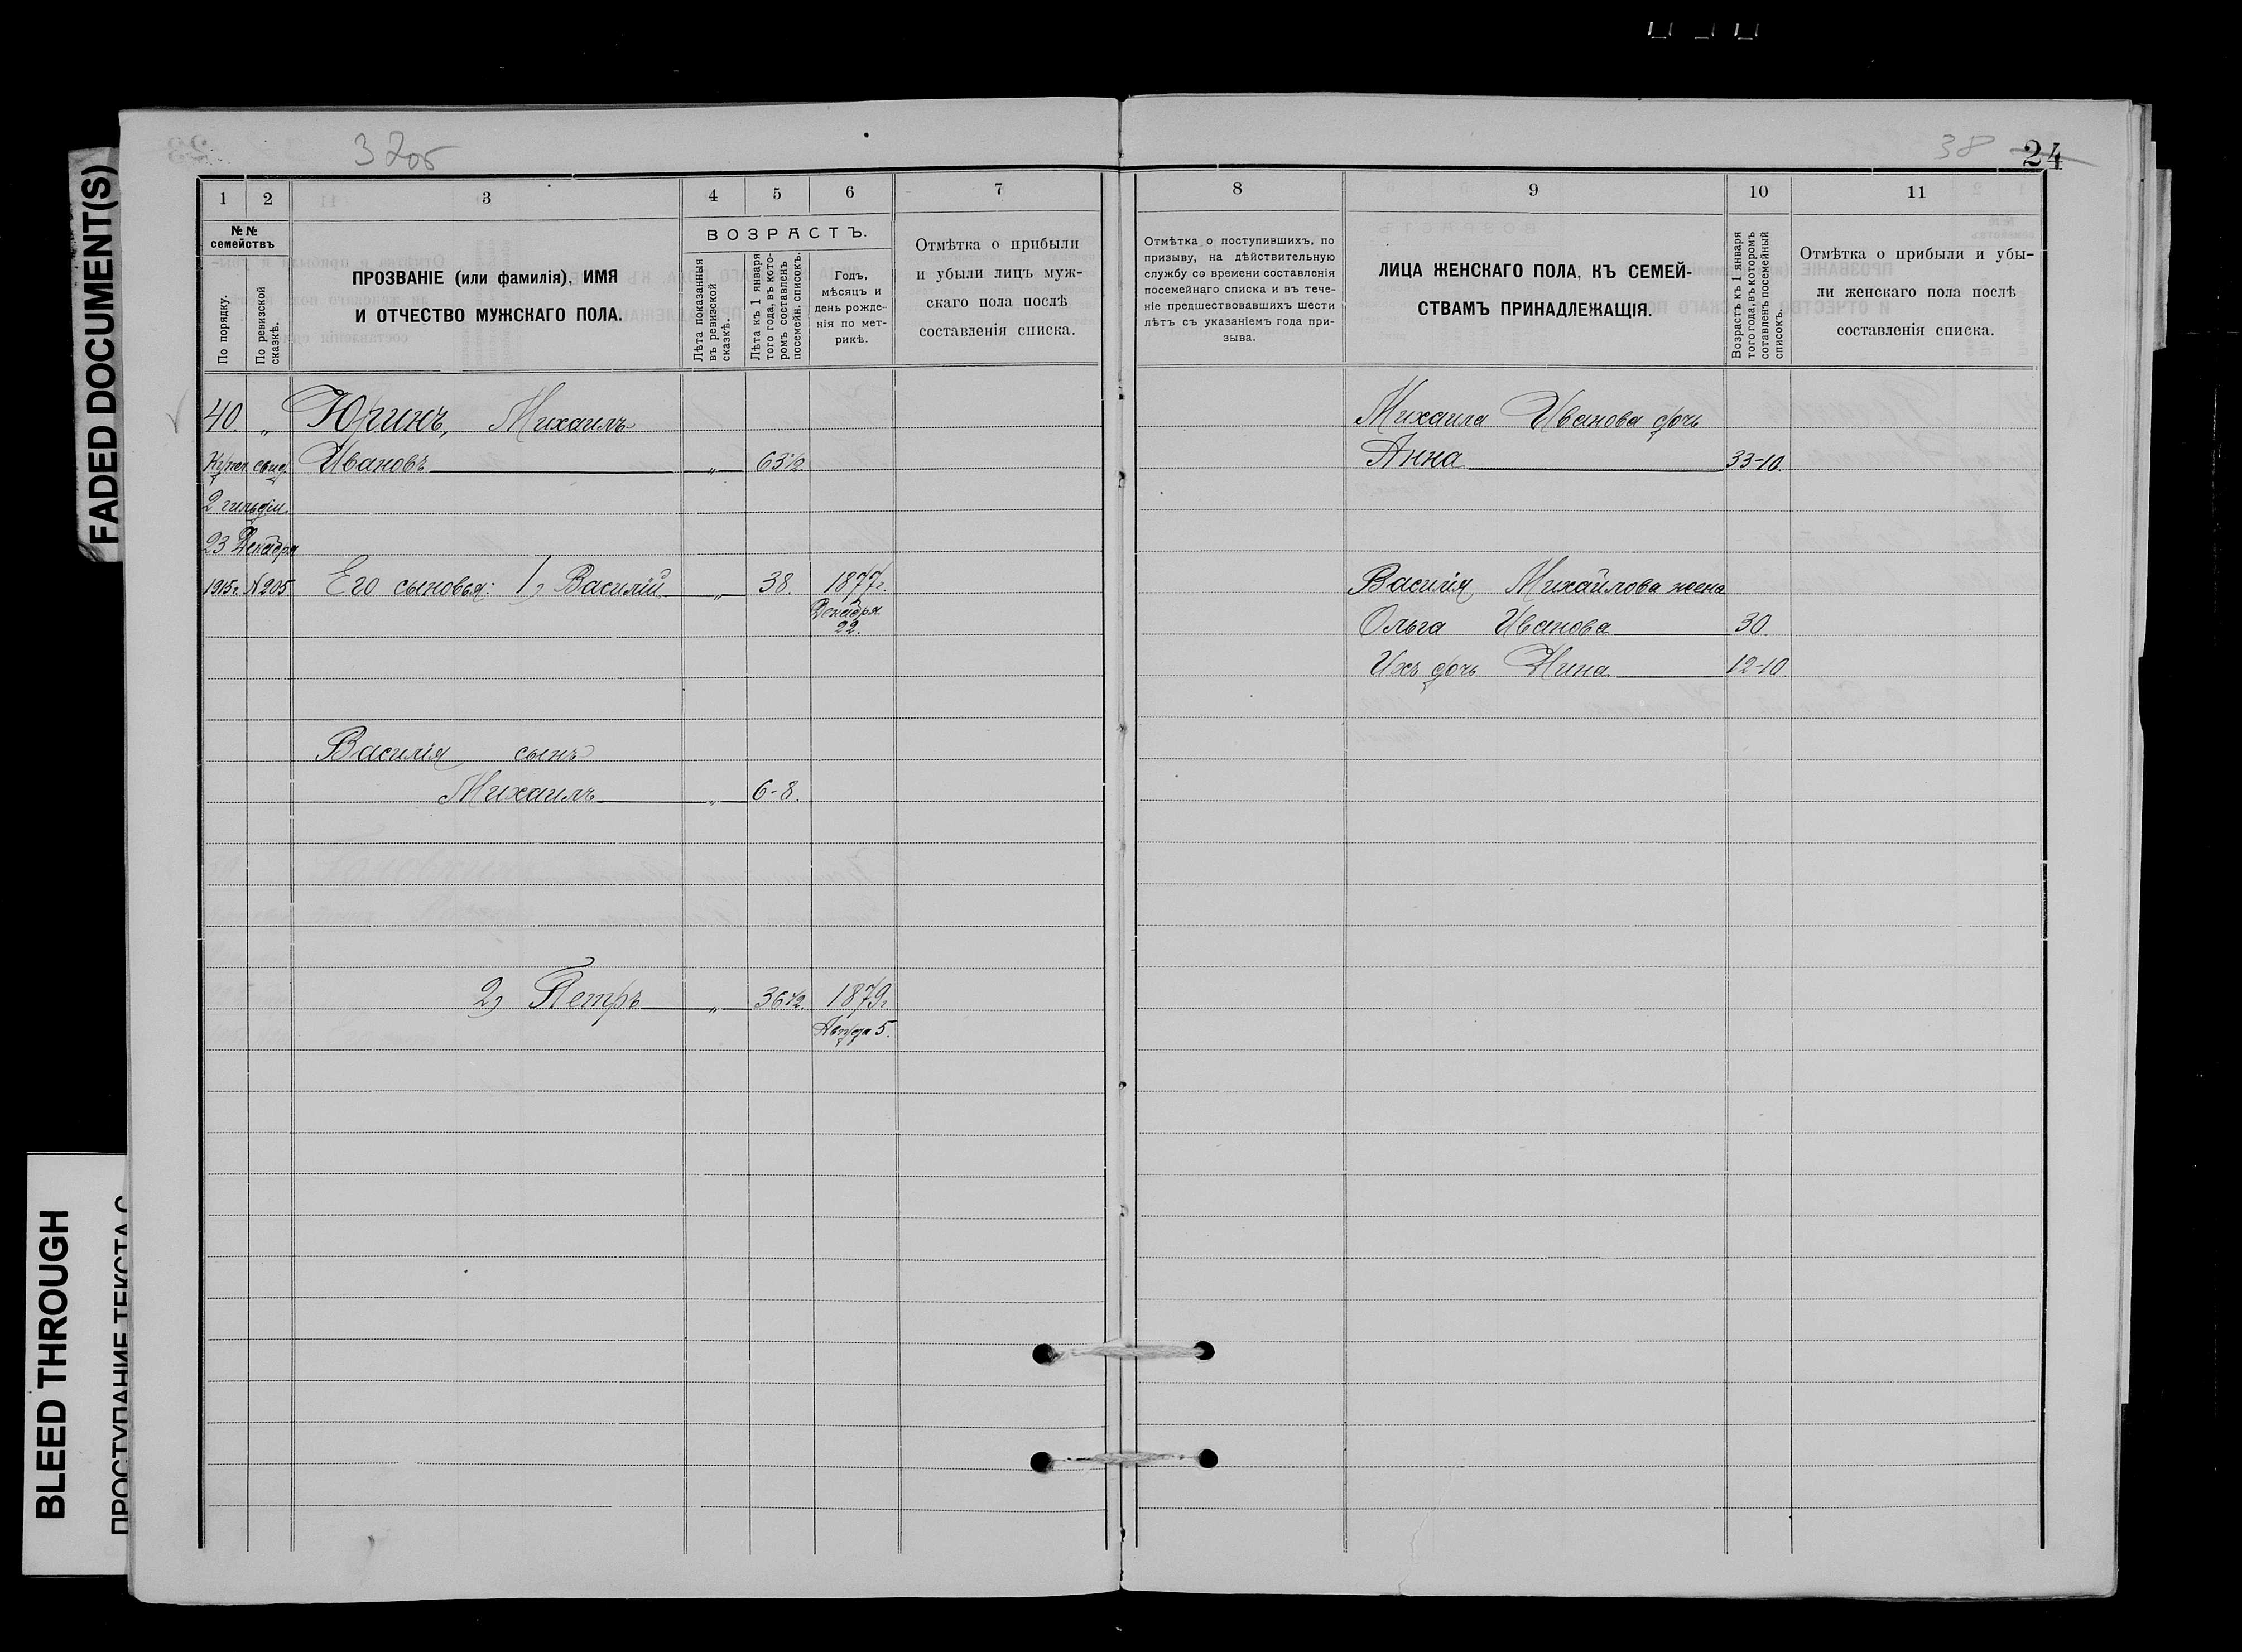 FADED DOCUMENT(S)
BLEED THROUGH
37об
38
24
1 2 3 4 5 6 7
№ №
семействъ
По порядку.
По ревизской
сказкѣ.
ПРОЗВАНІЕ (или фамилія), ИМЯ
И ОТЧЕСТВО МУЖСКАГО ПОЛА.
ВОЗРАСТЪ.
Лѣта показанныя
въ ревизской
сказкѣ.
Лѣта къ 1 января
того года, въ кото-
ромъ составленъ
посемейн. списокъ.
Годъ,
мѣсяцъ и
день рожде-
нія по мет-
рикѣ.
Отмѣтка о прибыли
и убыли лицъ муж-
скаго пола послѣ
составленія списка.
40. „ Юринъ, Михаилъ
Купеч. свид. Ивановъ „ 63½
2 гильдіи
23 Декабря
1915г. №205. Его сыновья: 1) Василій „ 38. 1877г.
Декабря
22.
Василія сынъ
Михаилъ „ 6-8.
2) Петръ „ 36½. 1879г.
Августа 5.
8 9 10 11
Отмѣтка о поступившихъ, по
призыву, на дѣйствительную
службу со времени составленія
посемейнаго списка и въ тече-
ніе предшествовавшихъ шести
лѣтъ съ указаніемъ года при-
зыва.
ЛИЦА ЖЕНСКАГО ПОЛА, КЪ СЕМЕЙ-
СТВАМЪ ПРИНАДЛЕЖАЩІЯ.
Возрастъ къ 1 января
того года, въ которомъ
сотавленъ посемейный
списокъ.
Отмѣтка о прибыли и убы-
ли женскаго пола послѣ
составленія списка.
Михаила Иванова дочь
Анна 33-10.
Василія Михайлова жена
Ольга Иванова 30.
Ихъ дочь Нина 12-10